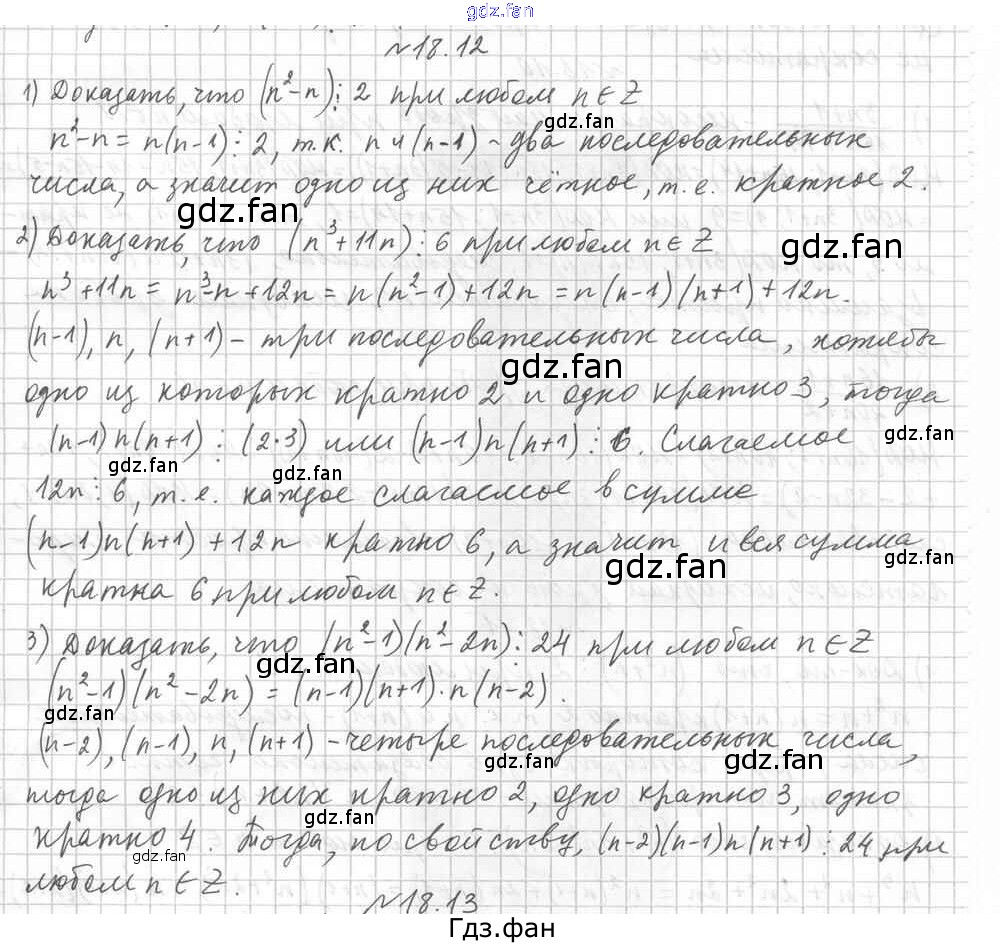 gdz.fan
№18.12
1) Доказать, что (n²-n)⋮2 при любом n∈Z
gdz.fan
n²-n = n(n-1)⋮2, т.к. n и (n-1) - два последовательных
числа, а значит одно из них чётное, т.е. кратное 2.
gdz.fan
2) Доказать, что (n³+11n)⋮6 при любом n∈Z
gdz.fan
n³+11n = n³-n+12n = n(n²-1)+12n = n(n-1)(n+1)+12n.
(n-1), n, (n+1) - три последовательных числа, хотябы
gdz.fan
одно из которых кратно 2 и одно кратно 3, тогда
(n-1)n(n+1)⋮(2·3) или (n-1)n(n+1)⋮6. Слагаемое
gdz.fan
gdz.fan gdz.fan
12n⋮6, т.е. каждое слагаемое в сумме
(n-1)n(n+1)+12n кратно 6, а значит и вся сумма
gdz.fan
gdz.fan
кратна 6 при любом n∈Z.
3) Доказать, что (n²-1)(n²-2n)⋮24 при любом n∈Z
gdz.fan
(n²-1)(n²-2n) = (n-1)(n+1)·n(n-2).
gdz.fan
(n-2), (n-1), n, (n+1) - четыре последовательных числа,
gdz.fan gdz.fan
тогда одно из них кратно 2, одно кратно 3, одно
кратно 4. Тогда, по свойству, (n-2)(n-1)n(n+1)⋮24 при
gdz.fan
любом n∈Z.
№18.13
Гдз.фан